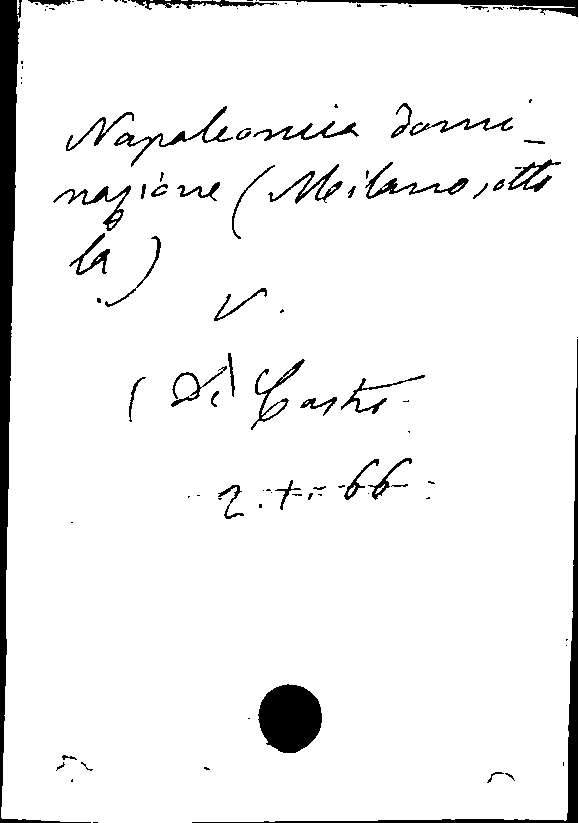 Napoleonica domi-
nazione (Milano sotto
la)
V.
(De) Castro
2. + . 66